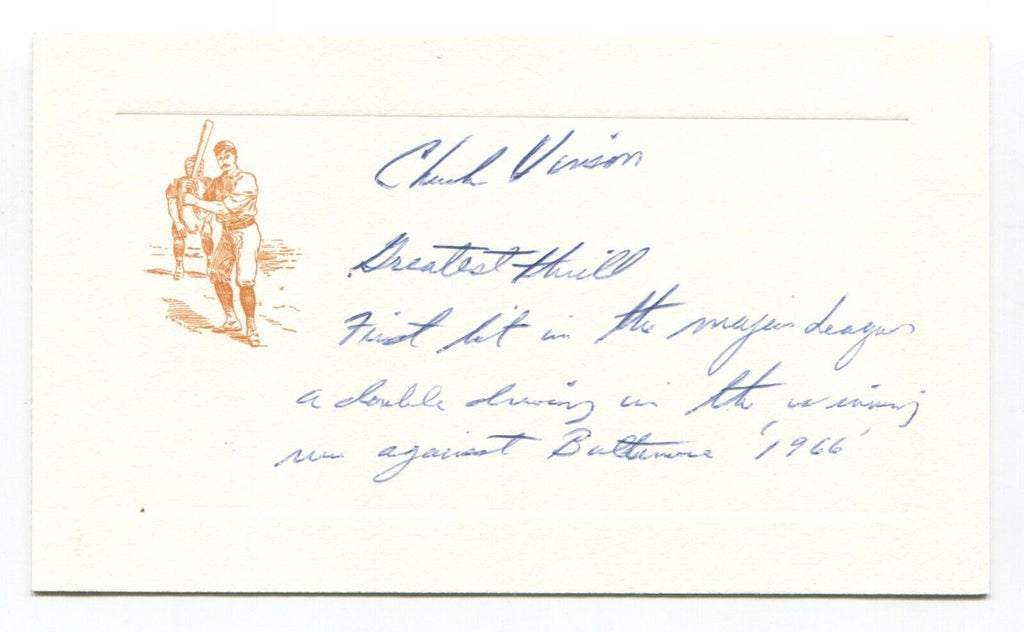 Chuck Vinson
Greatest thrill
First hit in the major leagues
a double driving in the winning
run against Baltimore '1966'